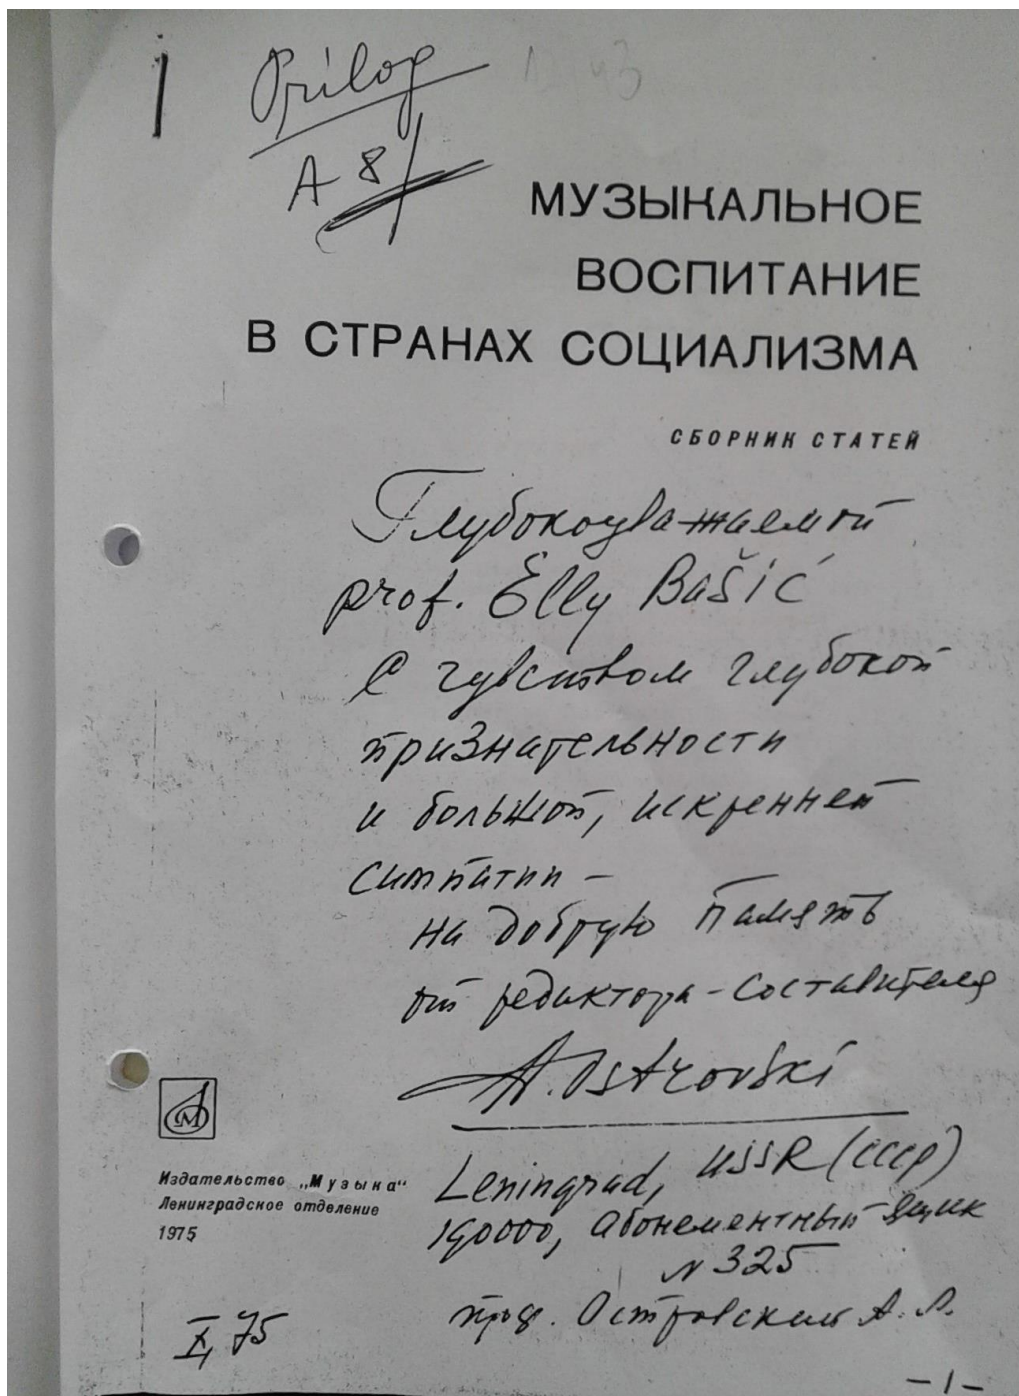 Prilog
A 8/
МУЗЫКАЛЬНОЕ
ВОСПИТАНИЕ
В СТРАНАХ СОЦИАЛИЗМА
СБОРНИК СТАТЕЙ
Глубокоуважаемой
prof. Elly Bašić
С чувством глубокой
признательности
и большой, искренней
симпатии –
на добрую память
от редактора-составителя
A. Ostrovski
Leningrad, USSR (СССР)
190000, абонементный ящик
N 325
проф. Островский А. Л.
Издательство „Музыка“
Ленинградское отделение
1975
X, 75
-1-